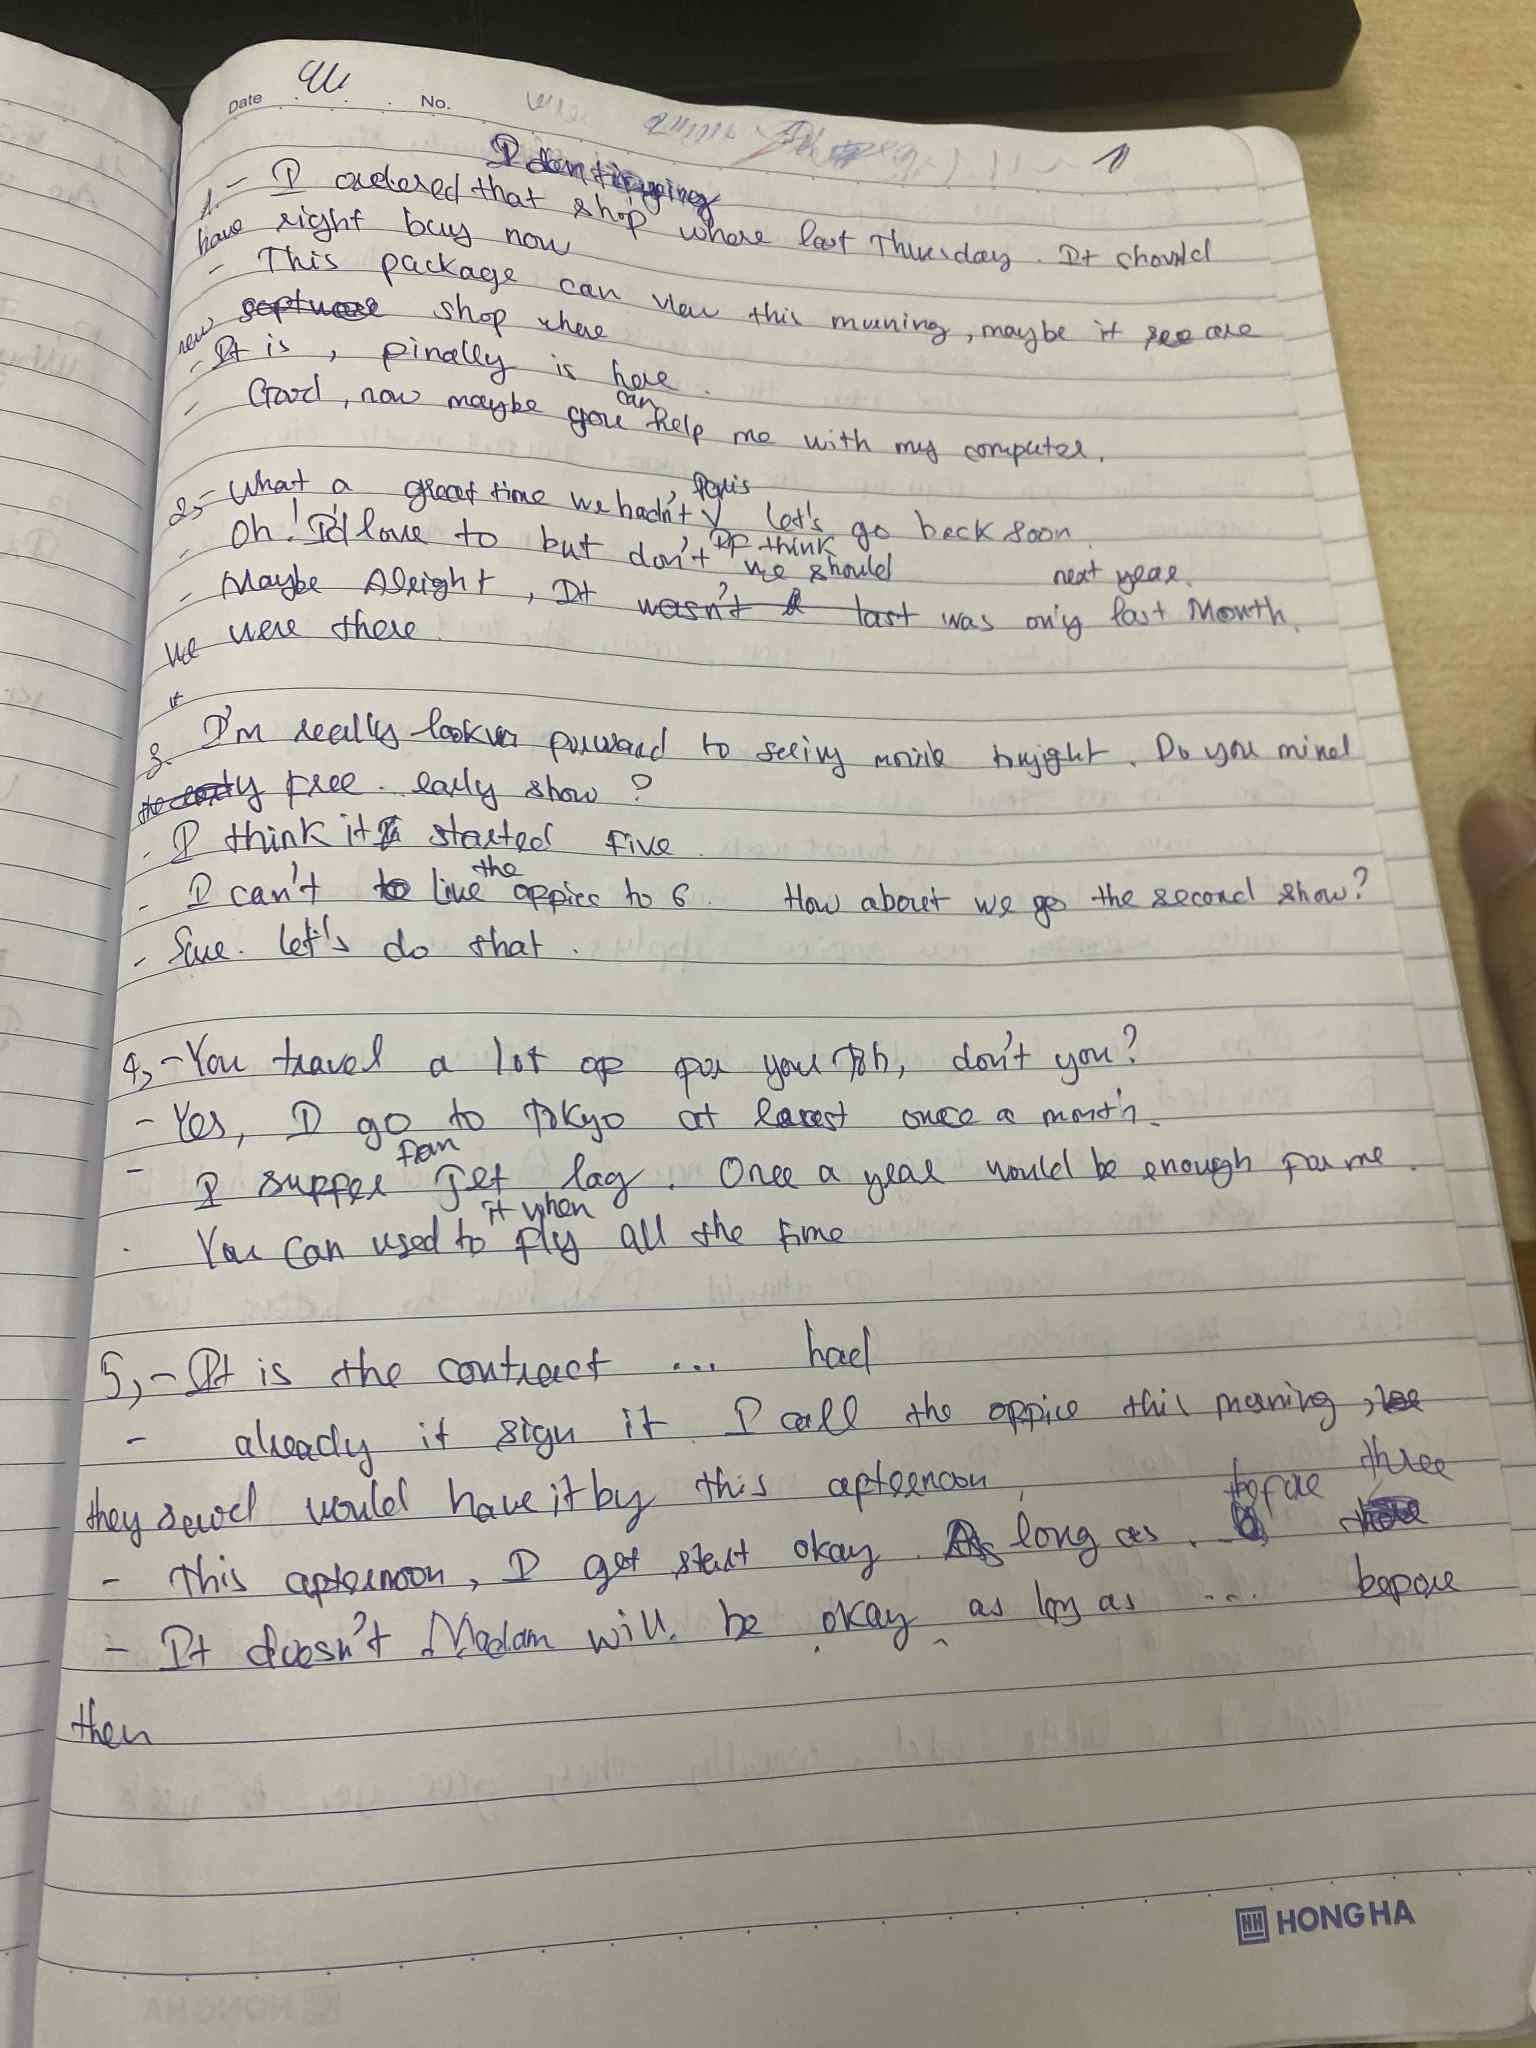 Date No.
Identifying
1. - I ordered that shop where last Thursday. It should
have right buy now
- This package can view this muning, maybe it see are
new software shop where
- It is, pinally is here.
- Good, now maybe you can help me with my computer.
2, - What a great time we hadn't Paris let's go back soon
- Oh! I'd love to but don't IP think we should next year.
- Maybe Alright, It wasn't a last was only last Month.
we were there
3. I'm really lookin porward to seeing movie tnyight. Do you mind
the early free. early show?
- I think it started Five.
- I can't to live the oppice to 6. How about we go the second show?
- Sure. Let's do that.
4, - You travel a lot op por you Job, don't you?
- Yes, I go to Tokyo at least once a month.
- I supper from jet lag. Once a year would be enough por me.
You can used to it when Fly all the time
5, - It is the contract ... had
- already it sign it. I call the oppice this morning,
they sowd would have it by this apternoon,
- This apternoon, I get start okay. As long as. before three
- It doesn't Madam will be okay as long as ... bepore
then
HH HONG HA